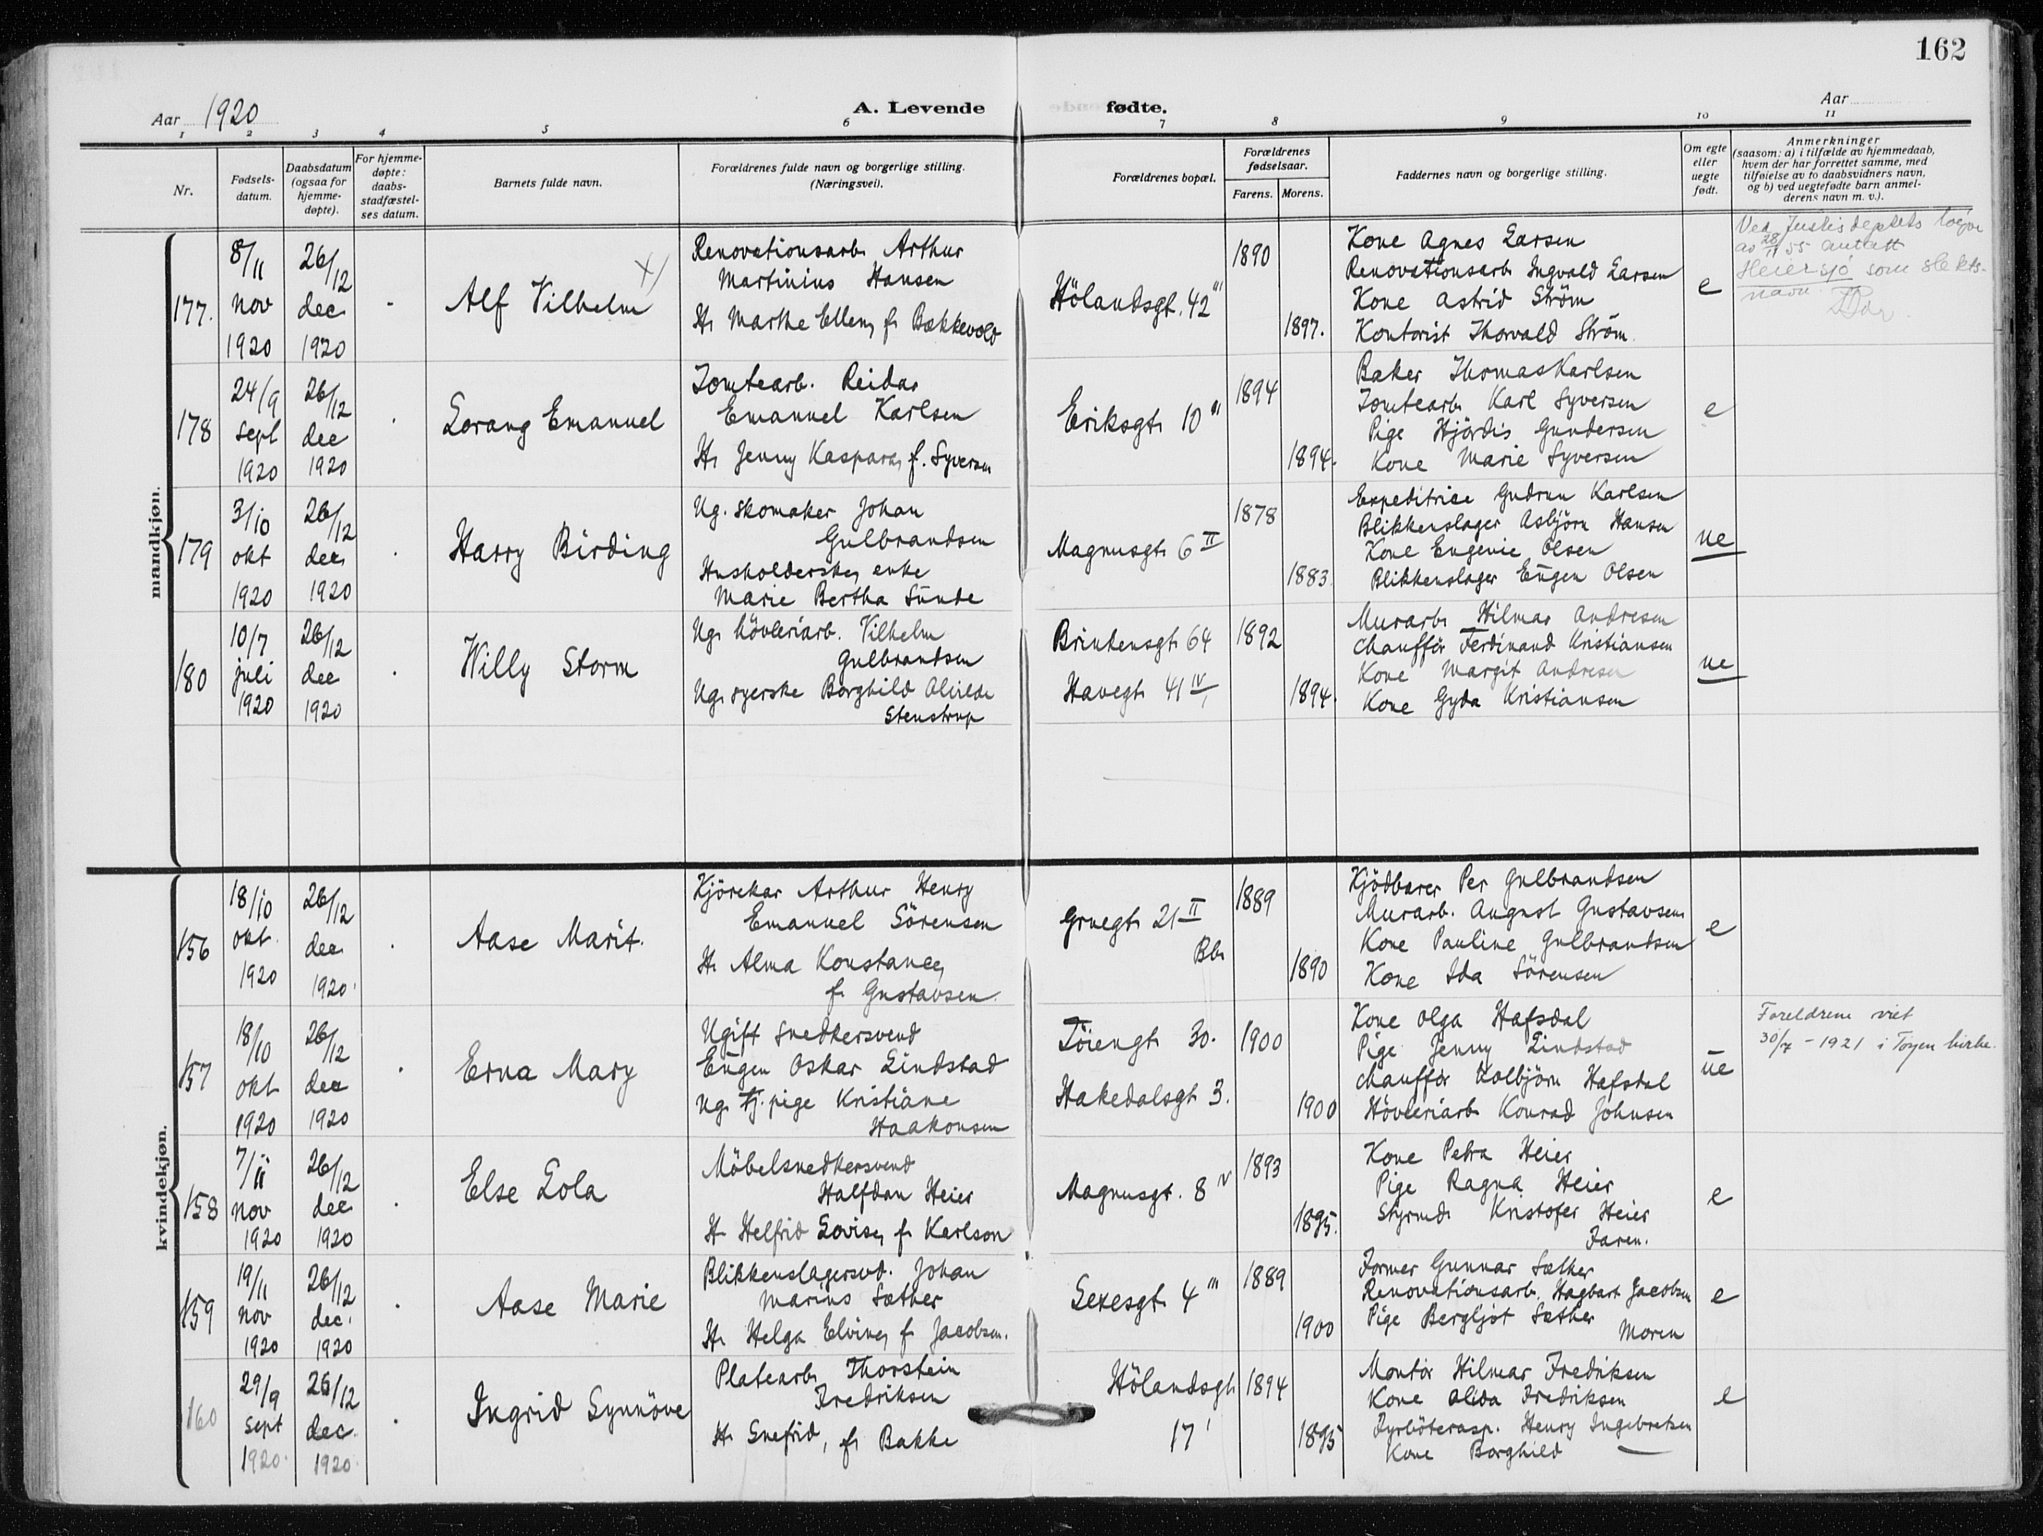 162
Aar 1920
A. Levende fødte.
Aar
1 2 3 4 5 6 7 8 9 10 11
Nr.
Fødsels-
datum.
Daabsdatum
(ogsaa for
hjemme-
døpte).
For hjemme-
døpte:
daabs-
stadfæstel-
ses datum.
Barnets fulde navn.
Forældrenes fulde navn og borgerlige stilling.
(Næringsvei).
Forældrenes bopæl.
Forældrenes
fødselsaar.
Farens. Morens.
Faddernes navn og borgerlige stilling.
Om egte
eller
uegte
født.
Anmerkninger
(saasom: a) i tilfælde av hjemmedaab,
hvem der har forrettet samme, med
tilføielse av to daabsvidners navn,
og b) ved uegtefødte barn anmel-
derens navn m. v.).
mandkjøn.
177.
8/11
nov
1920
26/12
dec
1920
Alf Vilhelm x)
Renovationsarb. Arthur
Martinius Hansen
H. Marthe Ellen, f. Bækkevold
Hölandsgt. 42 III
1890
1897.
Kone Agnes Larsen
Renovationsarb Ingvald Larsen
Kone Astrid Strøm
Kontorist Thorvald Strøm
e
Ved Justisdeptets
av 28/11 55 antatt
Heiersjö som slekts-
navn.
178
24/9
sept
1920
26/12
dec
1920
Lorang Emanuel
Tomtearb. Reidar
Emanuel Karlsen
H. Jenny Kaspara, f. Syversen
Eriksgt. 10 III
1894
1894.
Baker Thomas Karlsen
Tomtearb. Karl Syversen
Pige Hjördis Gundersen
Kone Marie Syversen
e
179
3/10
okt
1920
26/12
dec
1920
Harry Birding
Ug. skomaker Johan
Gulbrandsen
Husholderske, enke
Marie Bertha Sunde
Magnusgt. 6 II
1878
1883.
Expeditrice Gudrun Karlsen
Blikkenslager Asbjörn Hansen
Kone Eugenie Olsen
Blikkenslager Eugen Olsen
ue
180
10/7
juli
1920
26/12
dec
1920
Willy Storm
Ug. hövleriarb. Vilhelm
Gulbrandsen
Ug. syerske Borghild Alvilde
Stenstrup
Brinkensgt. 64
Havegt. 41 IV,
1892
1894.
Murarb. Hilmar Andresen
Chaufför Ferdinand Kristiansen
Kone Margit Andresen
Kone Gyda Kristiansen
ue
kvindekjøn.
156
18/10
okt.
1920
26/12
dec
1920.
Aase Marit.
Kjörekar Arthur Henry
Emanuel Sörensen
H. Alma Konstance,
f. Gustavsen.
Gruegt. 21 II
Bb.
1889
1890
Kjödbærer Per Gulbrandsen
Murarb. August Gustavsen
Kone Pauline Gulbrandsen
Kone Ida Sörensen
e
157
18/10
okt
1920
26/12
dec
1920
Erna Mary
Ugift snedkersvend
Eugen Oskar Lindstad
Ug. tj.pige Kristiane
Haakonsen
Töiengt. 30.
Hakedalsgt. 3.
1900
1900
Kone Olga Hafsdal
Pige Jenny Lindstad
Chaufför Kolbjörn Hafsdal
Hövleriarb. Konrad Johnsen
ue
Foreldrene viet
30/7 - 1921 i Töyen kirke.
158
7/11
nov
1920
26/12
dec
1920
Else Lola
Möbelsnedkersvend
Halfdan Heier
H. Helfrid Lovise, f. Karlson
Magnusgt. 8 V
1893
1895.
Kone Petra Heier
Pige Ragna Heier
Styrmd. Kristofer Heier
Faren.
e
159
19/11
nov
1920
26/12
dec.
1920
Aase Marie
Blikkenslagersvd. Johan
Marius Sæther
H. Helga Elvine, f. Jacobsen.
Sexesgt. 4 III
1889
1900
Former Gunnar Sæther
Renovationsarb. Hagbart Jacobsen
Pige Bergljot Sæther
Moren
e
160
29/9
sept
1920.
26/12
dec.
1920.
Ingrid Synnöve
Platearb. Thorstein
Fredriksen
H. Snefrid, f. Bakke
Hölandsgt.
17 I
1894
1895
Montör Hilmar Fredriksen
Kone Alida Fredriksen
Fyrböterasp. Henry Ingebretsen
Kone Borghild —
e